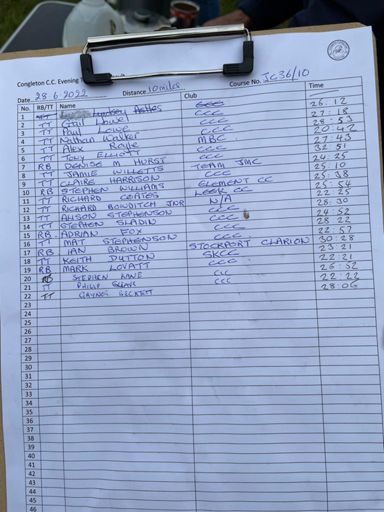 Congleton C.C. Evening
Date 28.6.2022 Distance 10 miles Course No. JC36/10
No. RB/TT Name Club Time
1 TT Lyndsey Ashles CCC 26:12
2 TT Gail Lowe CCC 27:18
3 TT Paul Lowe CCC 28:53
4 TT Nathan Walker CCC 20:42
5 TT Alex Royle MBC 27:43
6 TT TONY ELLIOTT CCC 32 51
7 RB DENISE M HURST CCC 24:25
8 TT JAMIE WILLETTS TEAM JMC 25:10
9 TT CLAIRE HARRISON CCC 25:38
10 RB STEPHEN WILLIAMS ELEMENT CC 25:54
11 TT RICHARD COATES LEEK CC 22 25
12 TT RICHARD BOWDITCH JNR N/A 28:30
13 TT ALISON STEPHENSON CCC 24 52
14 TT STEPHEN SLADIN CCC 28 22
15 RB ADRIAN FOX CCC 22 57
16 TT MAT STEPHENSON CCC 30:28
17 RB IAN BROWN STOCKPORT CLARION 23 21
18 TT KEITH DUTTON SKCC 22 21
19 RB MARK LOVATT CCC 26:52
20 RB STEPHEN LANE CCC 22:22
21 TT PHILIP CCC 28:06
22 TT
23
24
25
26
27
28
29
30
31
32
33
34
35
36
37
38
39
40
41
42
43
44
45
46